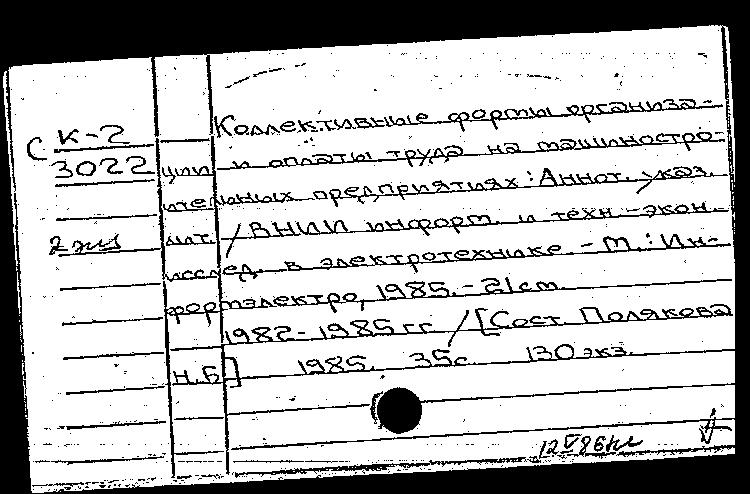 Коллективные формы организа-
С К-2
3022 ции и оплаты труда на машиностро-
ительных предприятиях: Аннот. указ.
2 экз лит. / ВНИИ информ. и техн.-экон.
исслед. в электротехнике. - М.: Ин-
формэлектро, 1985. - 21 см.
1982-1985 гг / [Сост. Полякова
Н.Б] 1985. 35 с. 130 экз.
12 V 86